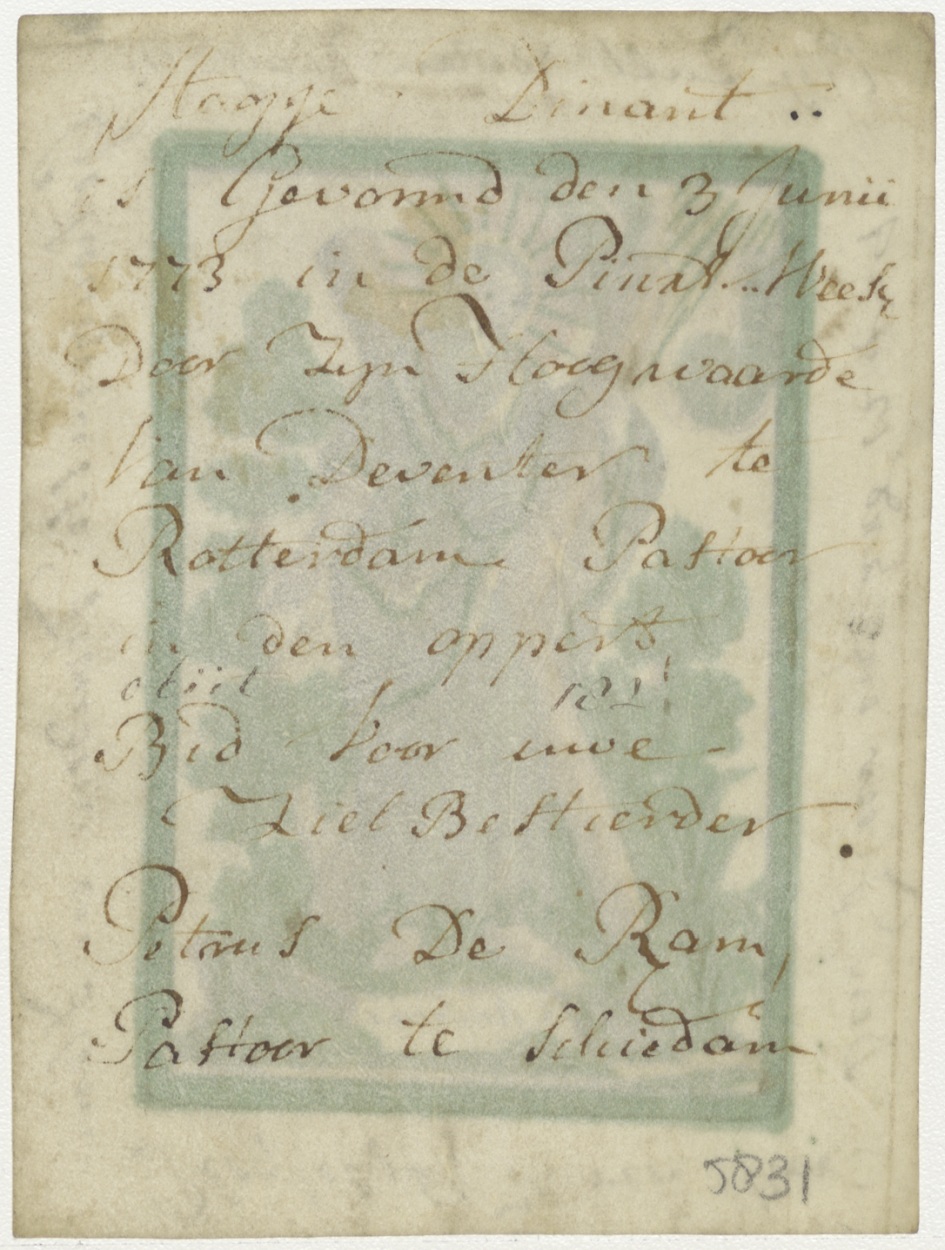 Dinant ..
is Gevormd den 3 Junii
1773 in de Pinxt..Week
Door Zijn Hoogwaarde
Van Deventer te
Rotterdam Pastoor
in den oppert
obiit 182
Bid voor uwe -
Ziel Bestierder
Petrus De Ram,
Pastoor te Schiedam
5831